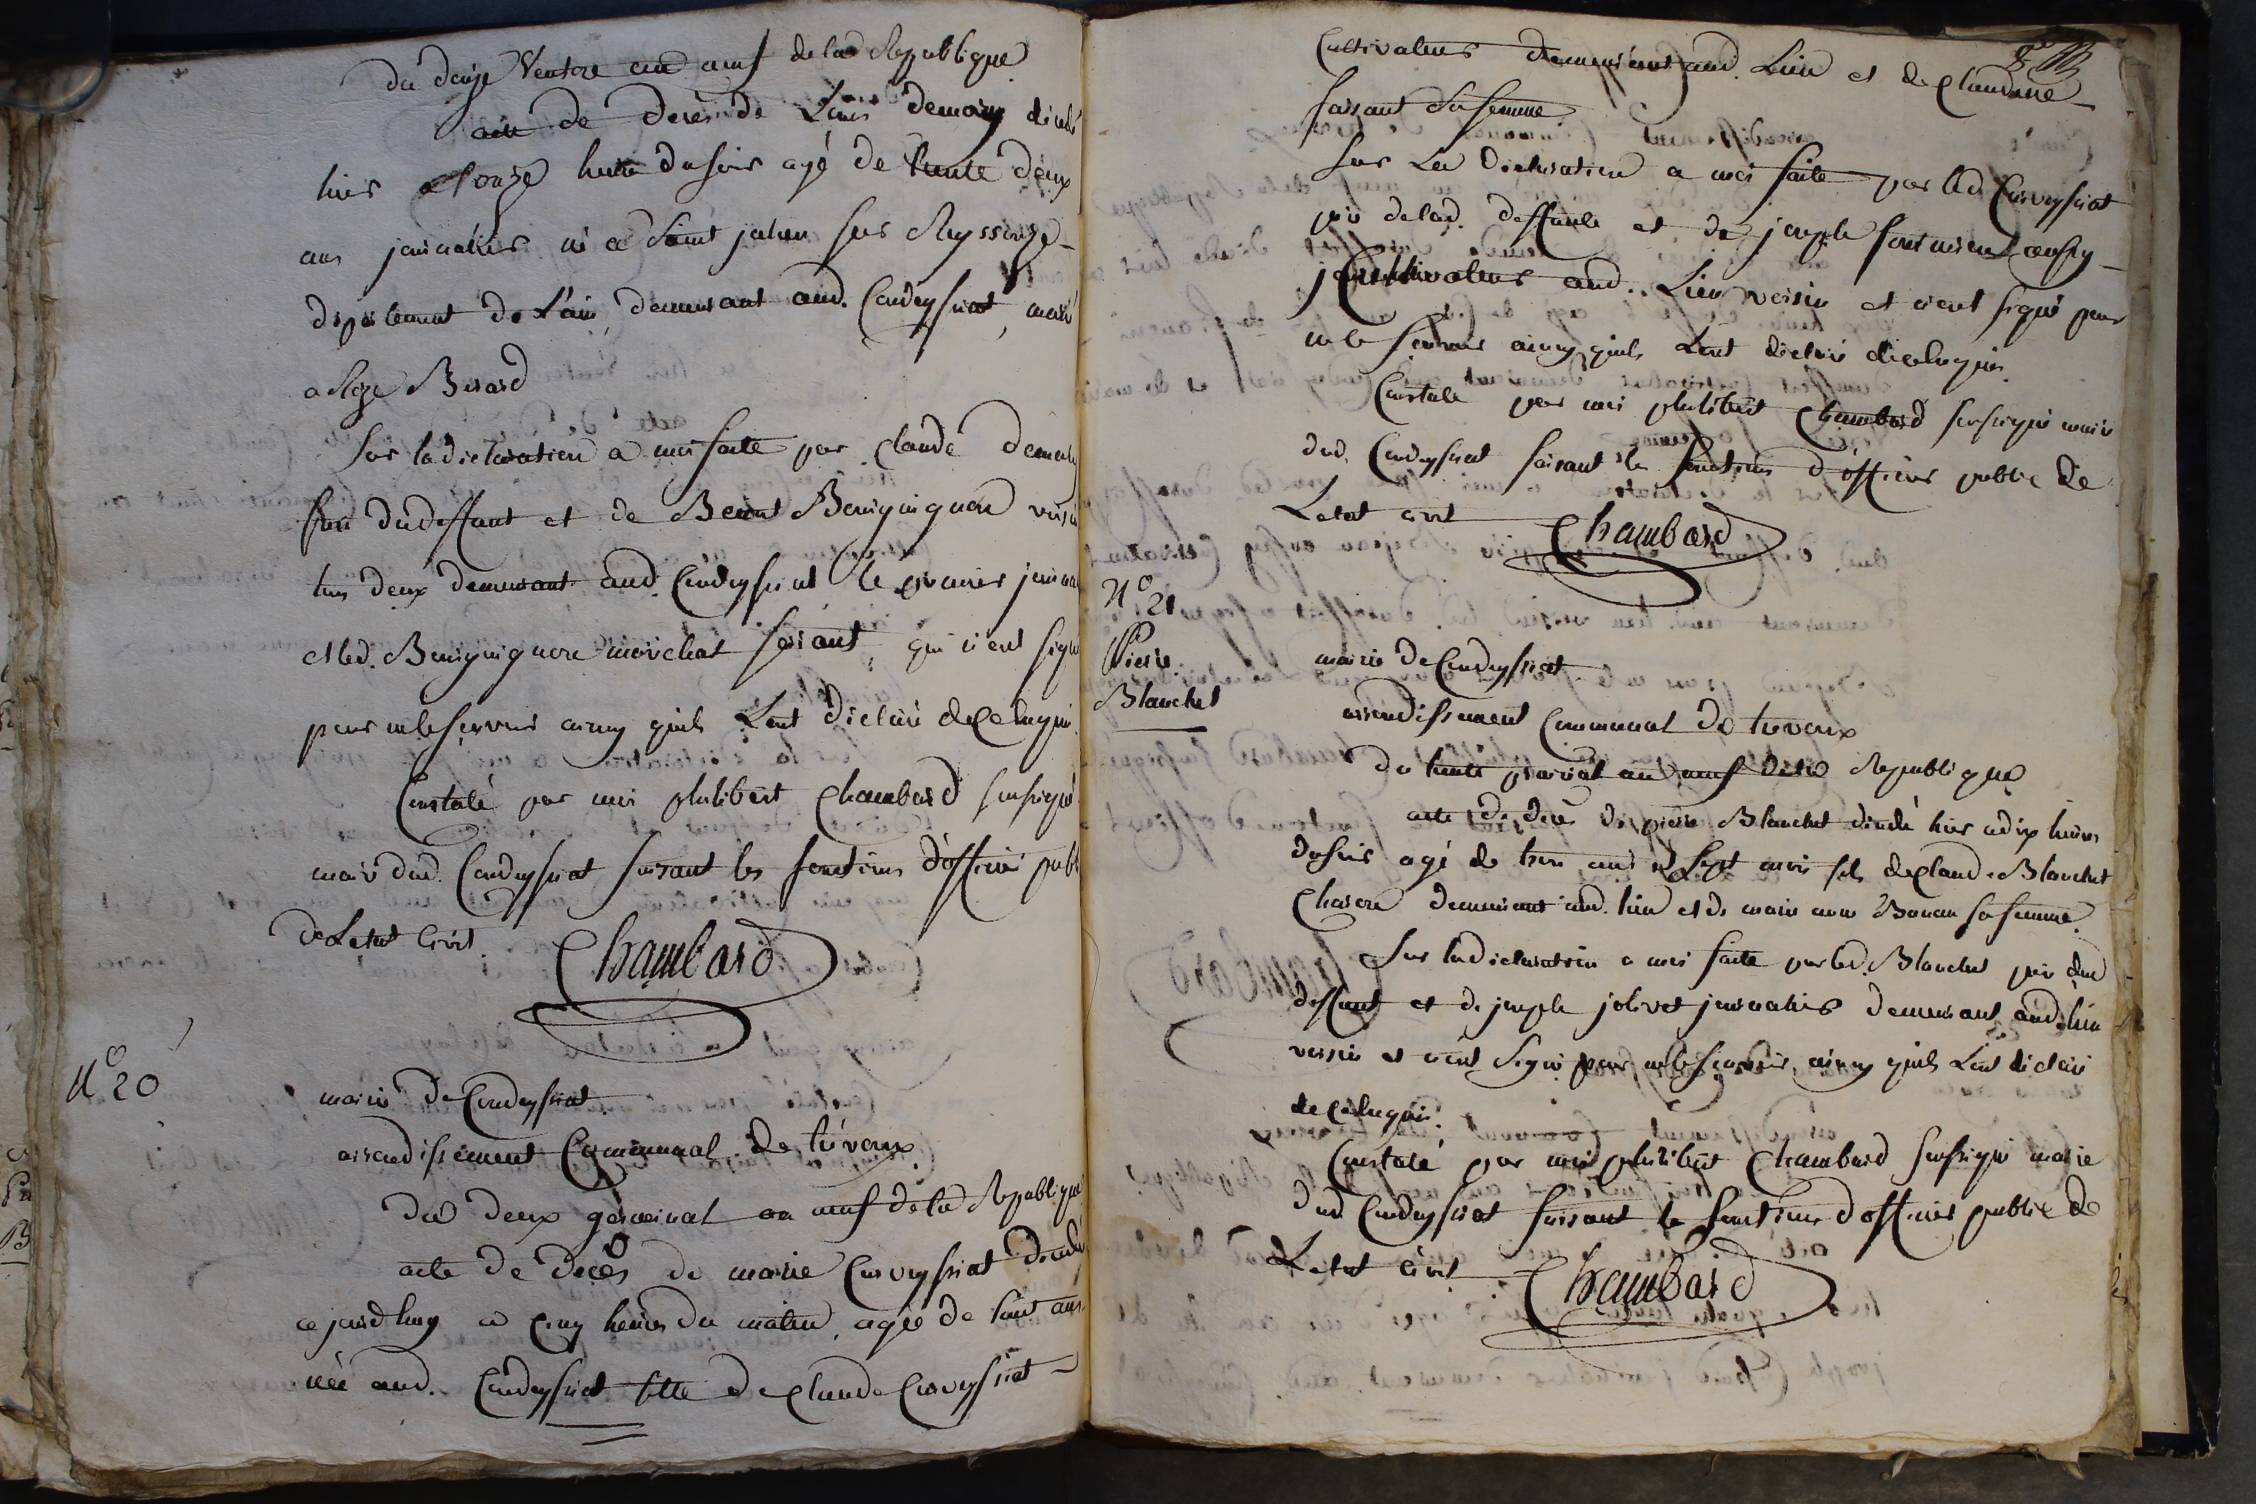 du douze Ventose an neuf de la Republique
acte de deces de Louis demong decedé
hier a onze heure du soir agé de trente deux
ans journalier né a Saint julien sur Reyssouze
departement de L'ain, demeurant aud. Condeyssiat, marié
a Roze Berard
Sur la declaration a moi faite par Claude
du deffunt et de Benoit Bourguignon voisin
tous deux demeurant aud. Condeyssiat le premier
et led. Bourguignon qui n'ont signé
pour ne le scavoir ainsy quils L'ont declaré de ce Requis
Constaté par moi philibert Chambard soussigné
maire dud. Condeyssiat faisant les fonctions d'officier public
de L'etat Civil. Chambard
No 20
mairie de Condeyssiat
arrondissement Communal de trévoux
du deux germinal an neuf de la Republique
acte de deces de marie Curveyssiat decedé
ce jourd'huy a cinq heures du matin, agée de huit ans
née aud. Condeyssiat fille de Claude Curveyssiat
Cultivateur demeurant aud. Lieu et de Claudine
sa femme
Sur La declaration a moi faite par led. Curveyssiat
pere de lad. deffunte et de joseph aussy
Cultivateur aud. Lieu voisin et n'ont signé pour
ne le scavoir ainsy quils L'ont declaré de ce Requis
Constaté par moi philibert Chambard soussigné maire
dud. Condeyssiat faisant les fonctions d'officier public de
L'etat civil Chambard
No 21
Pierre
Blanchet
mairie de Condeyssiat
arrondissement Communal de trévoux
du trente prairial an neuf de la Republique
acte de deces de pierre Blanchet décédé hier a dix heures
du soir agé de trois ans et Sept mois fils de Claude Blanchet
demeurant aud. lieu et de marie sa femme
Sur la declaration a moi faite par led. Blanchet pere dud
deffunt et de joseph jolivet journalier demeurant aud. lieu
voisin et n'ont Signé pour ne le scavoir, ainsy quils L'ont declaré
de ce Requis.
Constaté par moi philibert Chambard soussigné maire
dud Condeyssiat faisant les fonctions d'officier public de
L'etat Civil Chambard